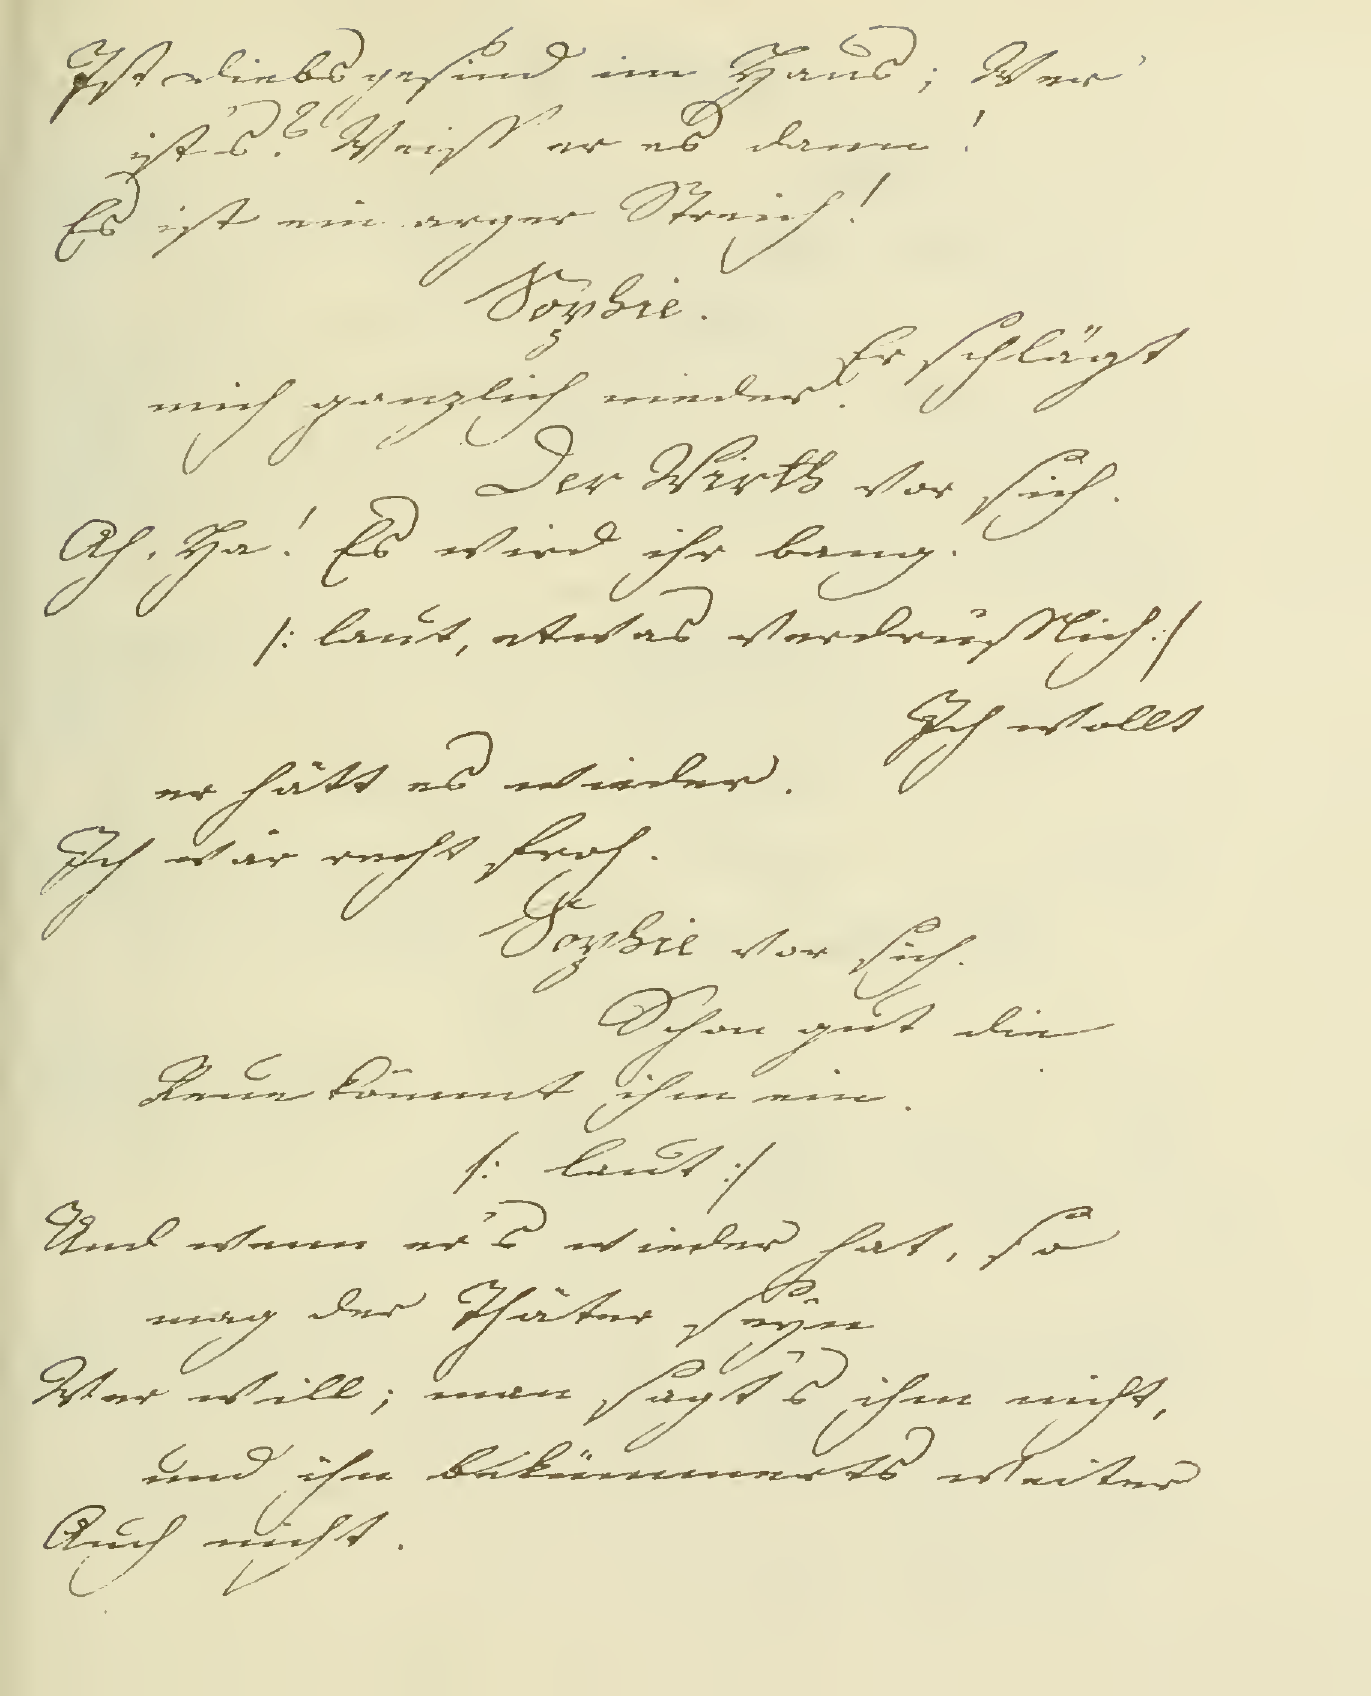 Ist diebsgesind im Haus; Wer
ist's? Weiss er es dann!
Es ist ein arger Streich!
Sophie.
Er schlägt
mich ganzlich nieder.
Der Wirth vor sich.
Ah, Ha! Es wird ihr bang.
/: laut, etwas verdrüsslich :/
Ich wollt
er hätt es wieder.
Ich wär recht froh.
Sophie vor sich.
Schon gut die
Reue kömmt ihm ein.
/: laut :/
Und wenn er's wieder hat, so
mag der Thäter seyn
Wer will; man sagt's ihm nicht,
und ihn bekümmerts weiter
Auch nicht.